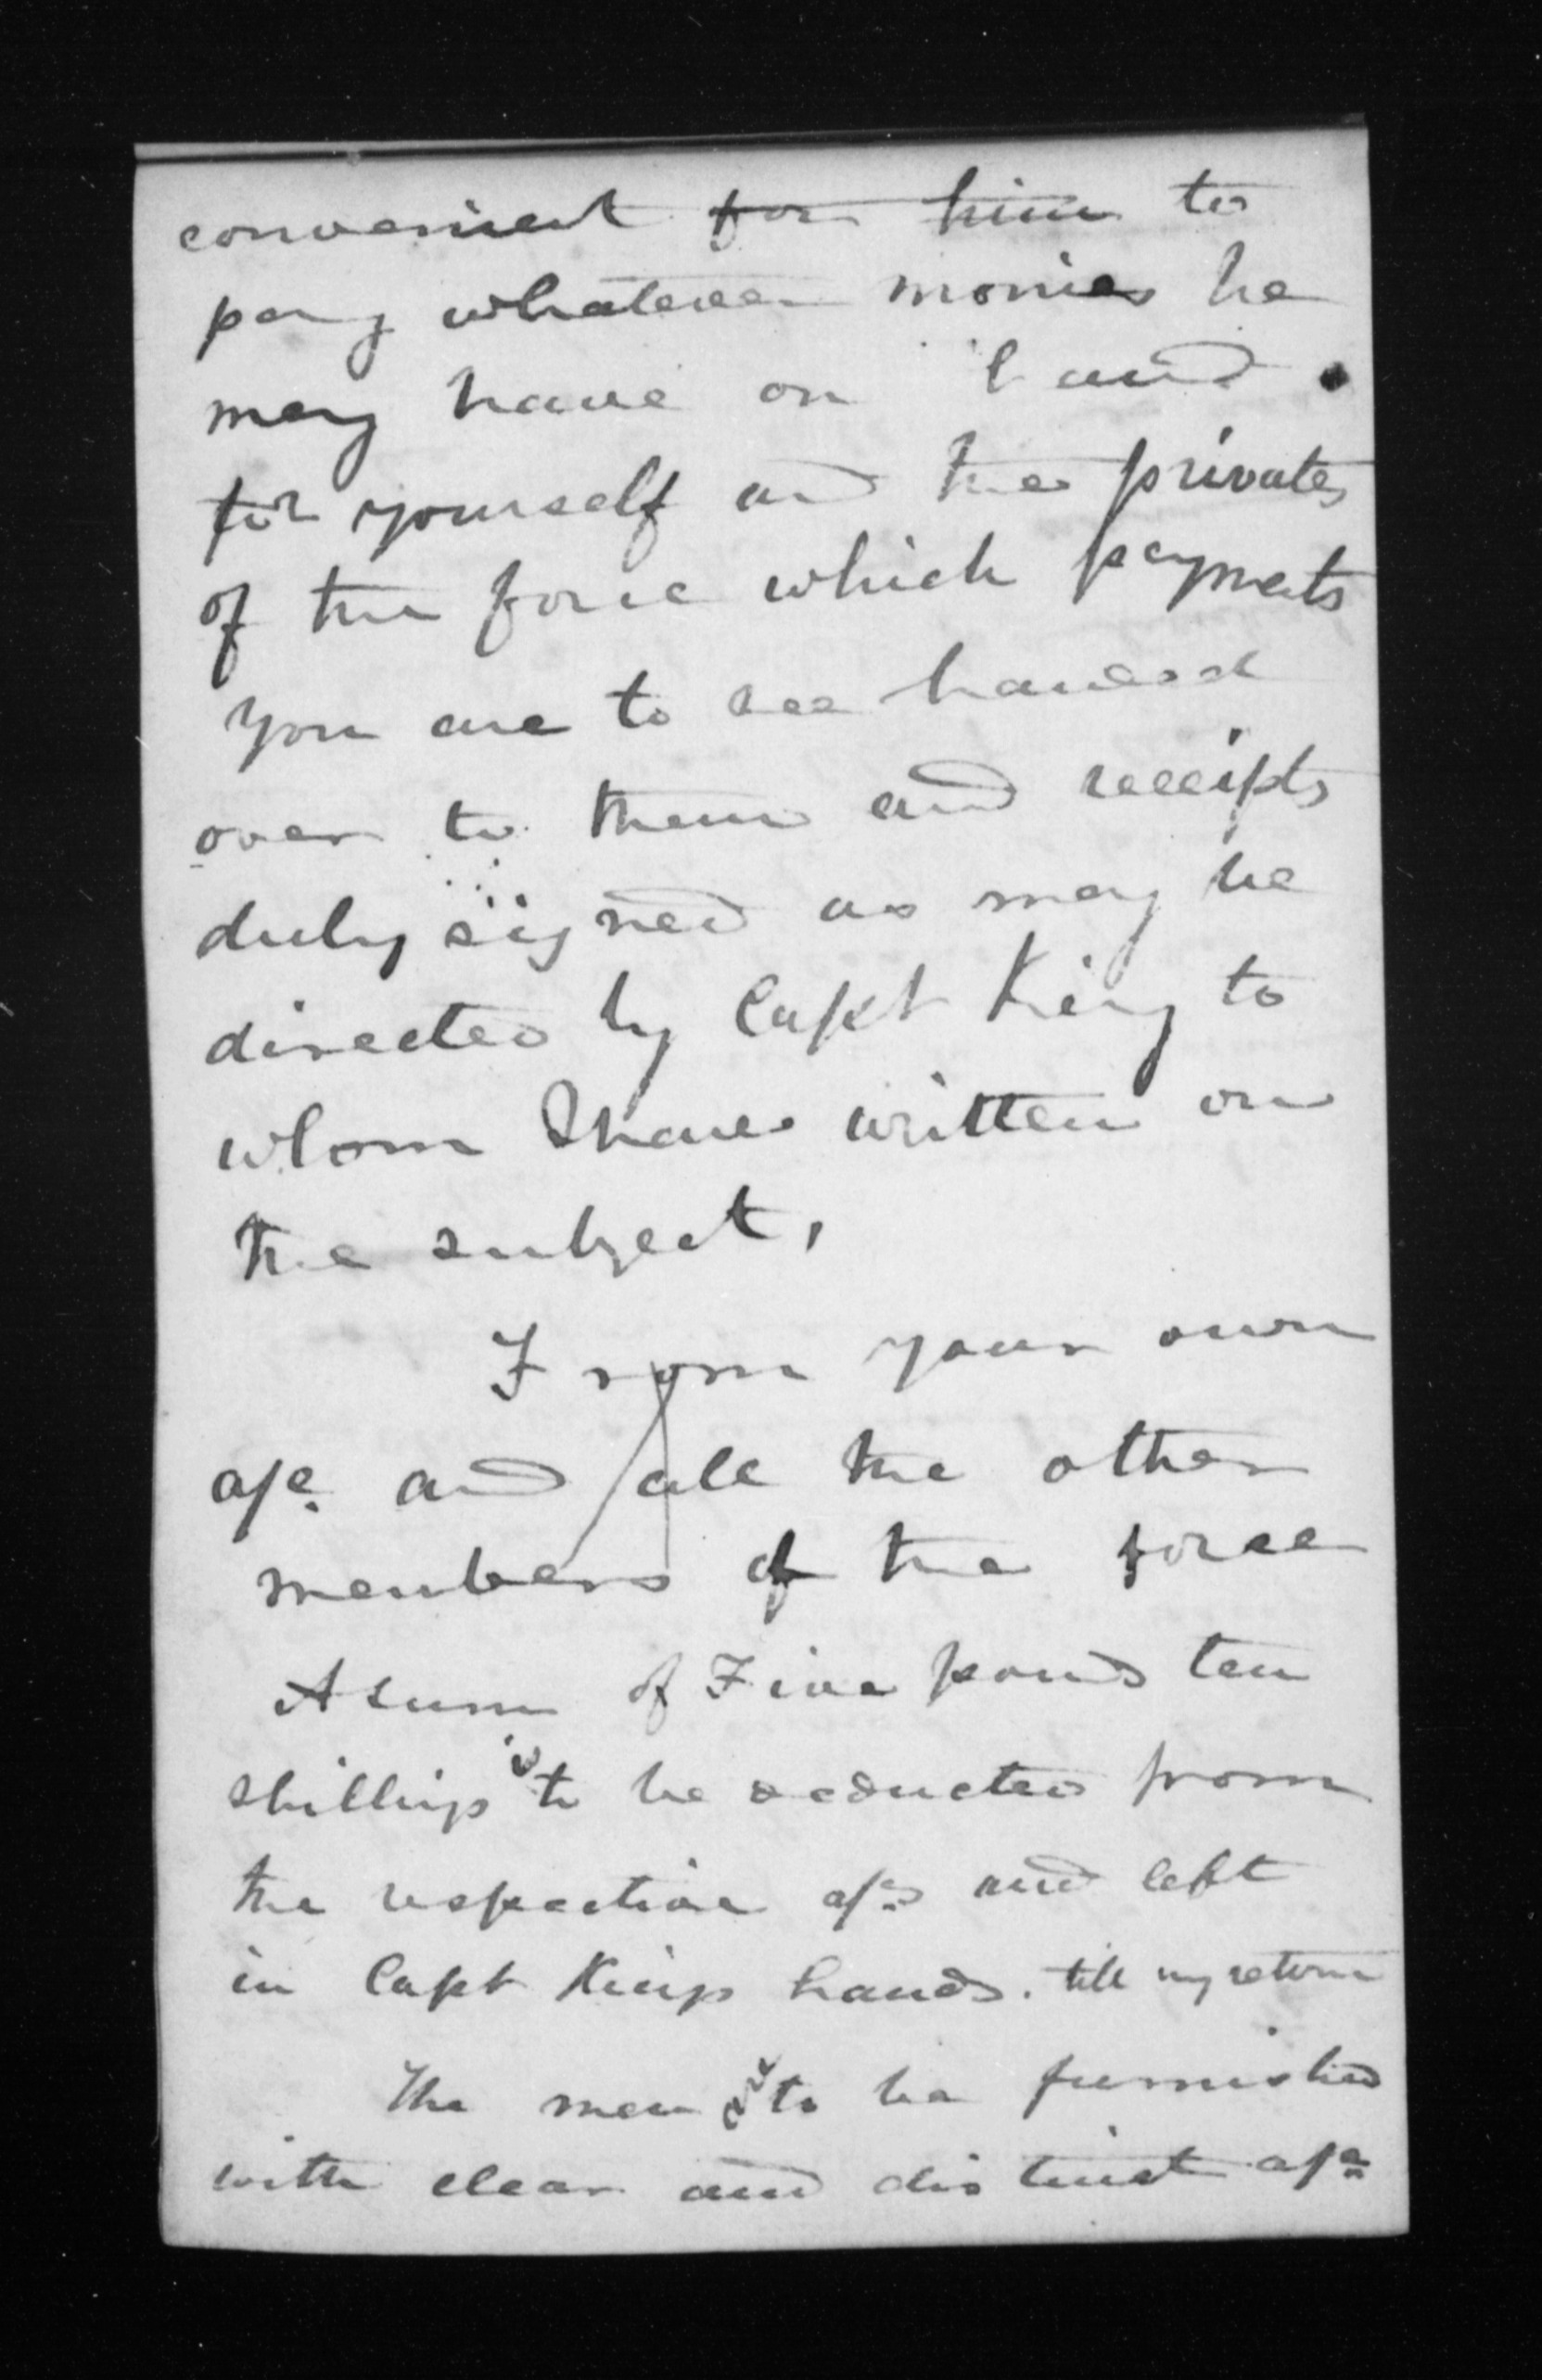 convenient for him to
pay whatever monies he
may have on hand
for yourself and the privates
of the force which payments
you are to see handed
over to them and receipts
duly signed as may be
directed by Capt King to
whom I have written on
the subject,
From your own
a/c. and all the other
members of the force
A sum of Five pounds ten
shillings is to be deducted from
the respective a/cs and left
in Capt Kings hands. till my return
The men are to be furnished
with clear and distinct a/cs